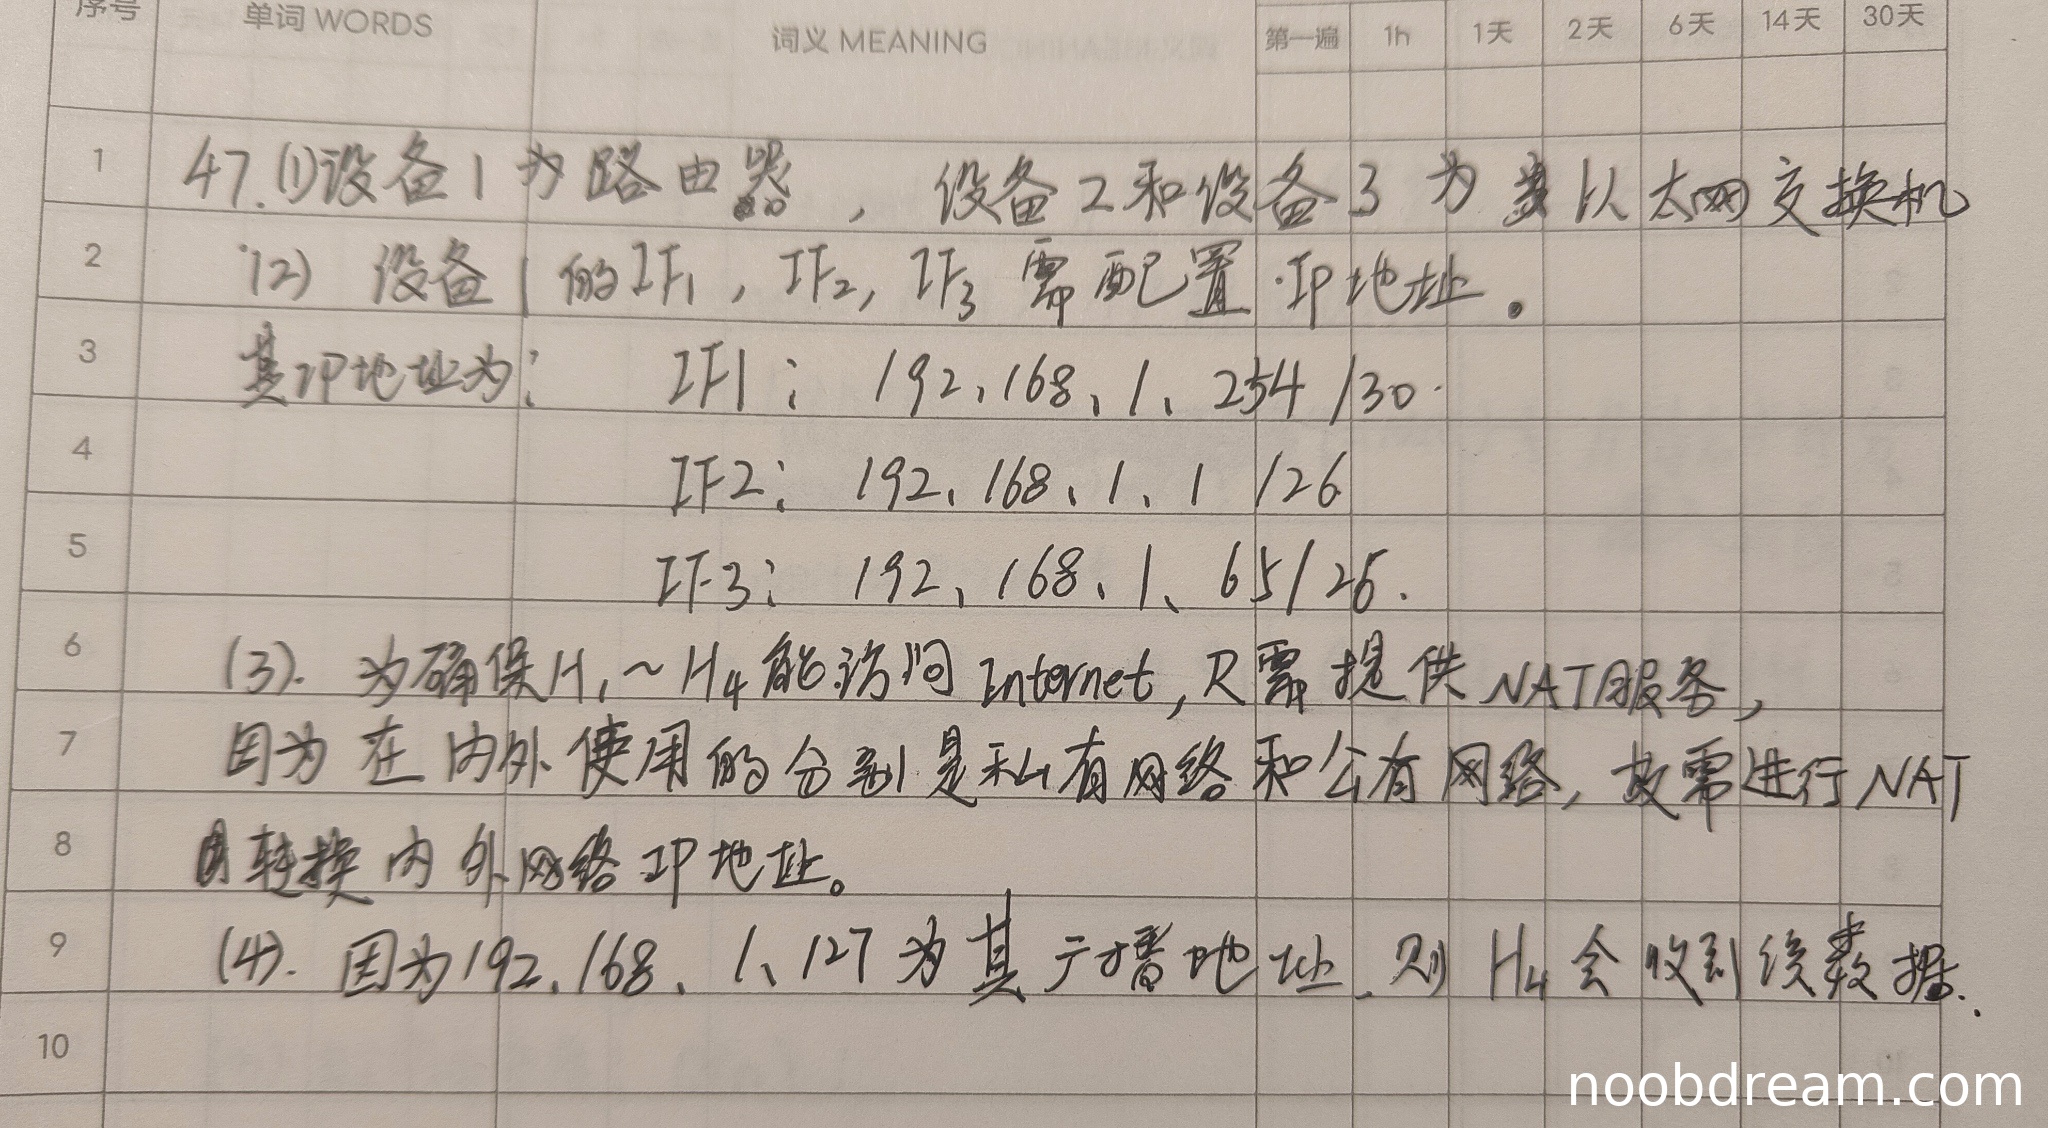 序号 单词 WORDS 词义 MEANING 第一遍 1h 1天 2天 6天 14天 30天
1 47.(1)设备1为路由器，设备2和设备3为以太网交换机
2 (2) 设备1的IF1，IF2，IF3需配置IP地址。
3 其IP地址为： IF1： 192.168.1.254 /30
4 IF2： 192.168.1.1 /26
5 IF3： 192.168.1.65/26.
6 (3). 为确保H1～H4能访问Internet,R需提供NAT服务，
7 因为在内外使用的分别是私有网络和公有网络，故需进行NAT
8 转换内外网络IP地址。
9 (4). 因为192.168.1.127为其广播地址.则H4会收到该数据.
10
noobdream.com